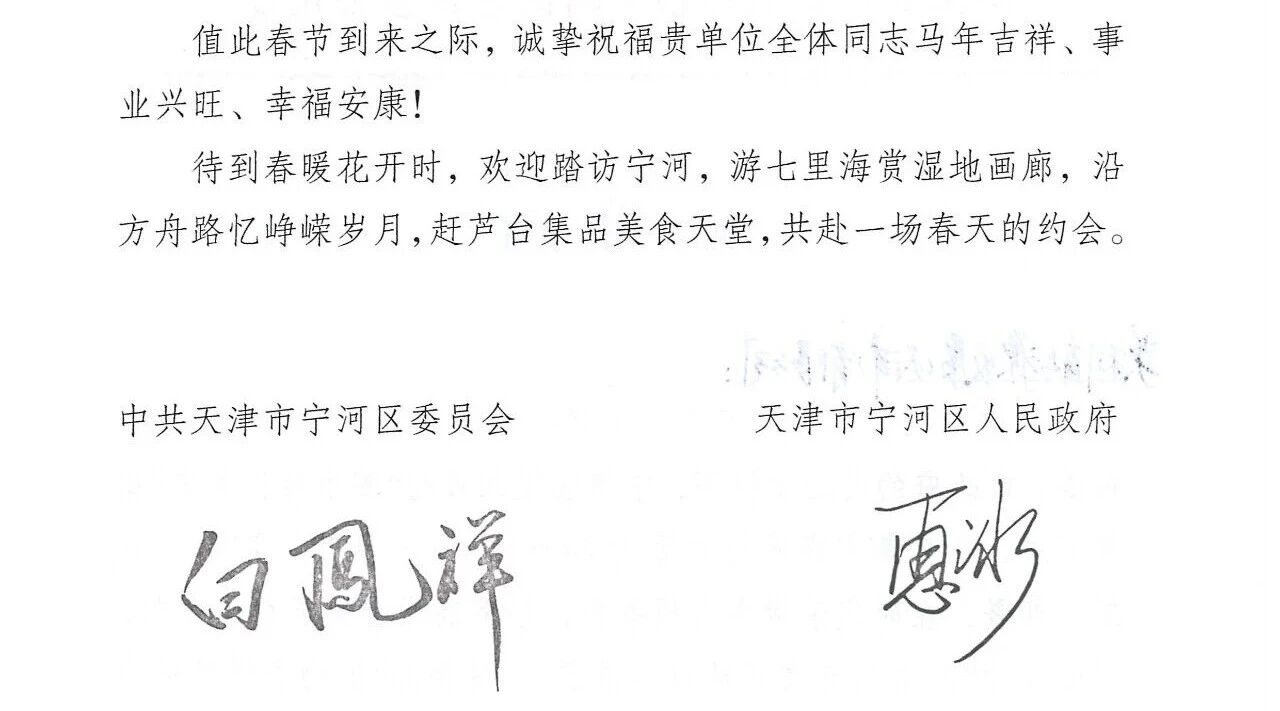 值此春节到来之际，诚挚祝福贵单位全体同志马年吉祥、事
业兴旺、幸福安康！
待到春暖花开时，欢迎踏访宁河，游七里海赏湿地画廊，沿
方舟路忆峥嵘岁月，赶芦台集品美食天堂，共赴一场春天的约会。
中共天津市宁河区委员会
天津市宁河区人民政府
白鳳祥
惠冰